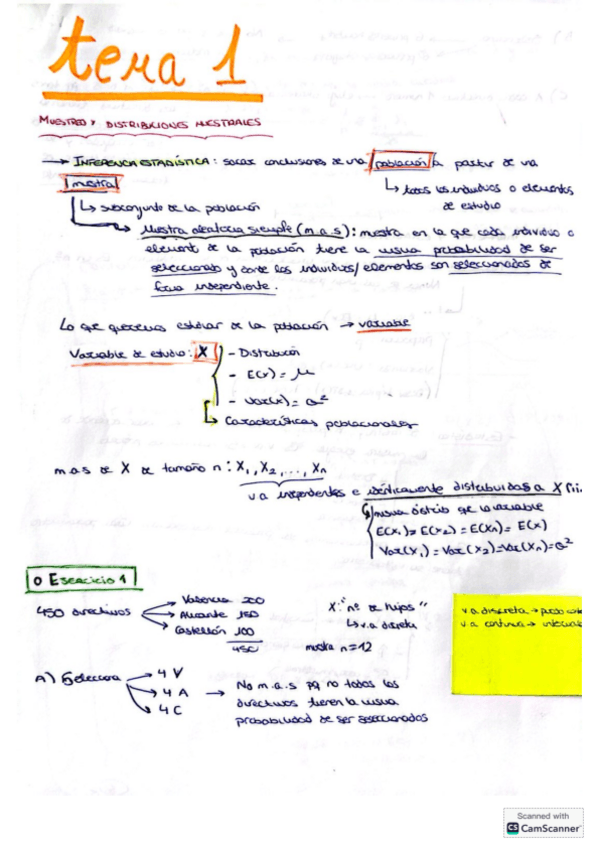 tema 1
MUESTREO Y DISTRIBUCIONES MUESTRALES
→ INFERENCIA ESTADÍSTICA: sacar conclusiones de una población a partir de una
muestra
↳ todos los individuos o elementos
de estudio
↳ subconjunto de la población
↳ Muestra aleatoria simple (m.a.s): muestra en la que cada individuo o
elemento de la población tiene la misma probabilidad de ser
seleccionado y donde los individuos/elementos son seleccionados de
forma independiente.
Lo que queremos estudiar de la población → variable
Variable de estudio: X
- Distribución
- E(x) = μ
- Var(x) = σ²
↳ Características poblacionales
m.a.s de X de tamaño n: X₁, X₂, ..., Xn
v.a independientes e idénticamente distribuidas a X
↳ misma distrib que la variable
E(X₁) = E(X₂) = E(Xn) = E(X)
Var(X₁) = Var(X₂) = Var(Xn) = σ²
○ EJERCICIO 1
450 directivos
Valencia 200
Alicante 150
Castellón 100
450
X: "nº de hijos"
↳ v.a discreta
muestra n = 12
v.a discreta →
v.a continua →
A) Selecciona
→ 4 V
→ 4 A
→ 4 C
→ No m.a.s pq no todos los
directivos tienen la misma
probabilidad de ser seleccionados
Scanned with
CS CamScanner